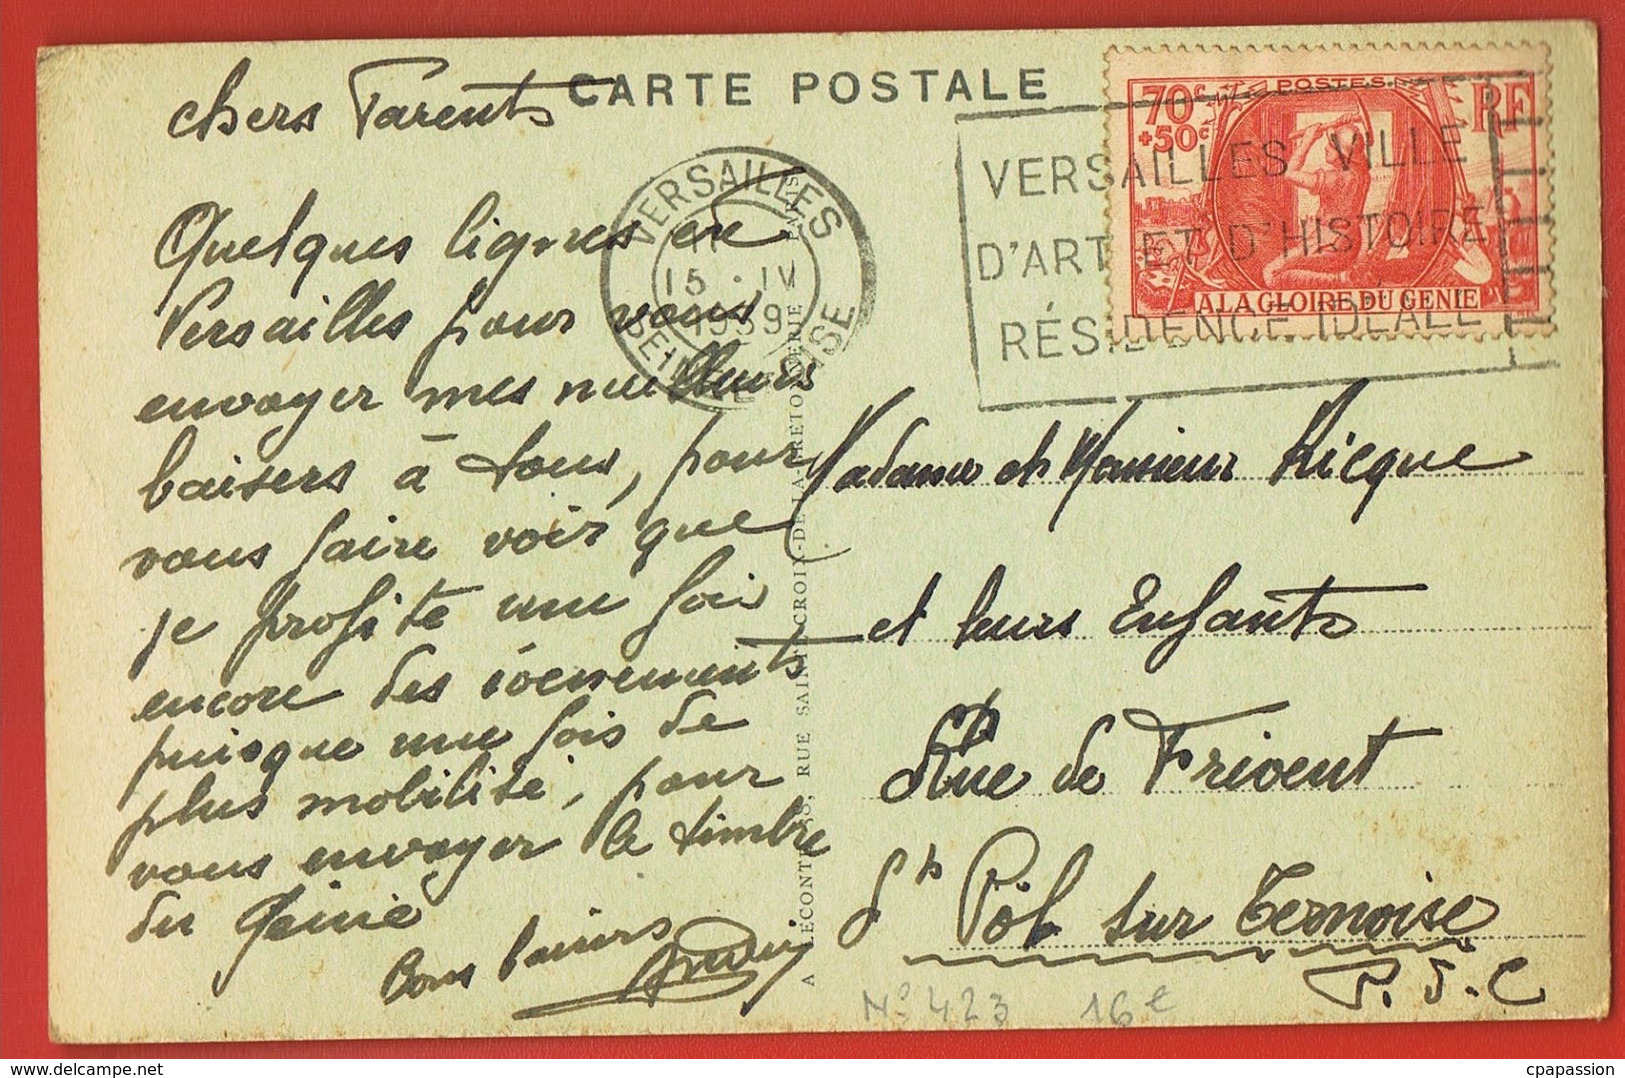 CARTE POSTALE
chers Parents
Quelques lignes de
Versailles pour vous
envoyer mes meilleurs
baisers à tous, pour
vous faire voir que
je profite une fois
encore des évenements
puisque une fois de
plus mobilisé, pour
vous envoyer le timbre
du Génie
bons baisers
VERSAILLES
15 · IV
1939
SEINE ET OISE
VERSAILLES VILLE
D'ART ET D'HISTOIRE
RÉSIDENCE IDÉALE
POSTES
70c
+50c
RF
A LA GLOIRE DU GENIE
A LECONTE, 38, RUE SAINTE-CROIX-DE-LA-BRETONNERIE PARIS
Madame et Monsieur Ricque
et leurs Enfants
Rue de Frévent
St Pôl sur Ternoise
P. d. C
N° 423 16€
delcampe.net
cpapassion